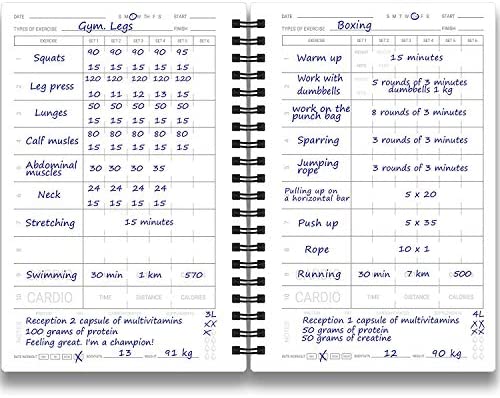 DATE S M T W T H F S START
TYPES OF EXERCISE Gym. Legs FINISH
EXERCISE SET 1 SET 2 SET 3 SET 4 SET 5 SET 6
1 Squats 90 90 90 90 95
15 15 15 15 15
2 Leg press 120 120 120 120 120
10 11 12 13 15
3 Lunges 50 50 50 50 50
15 15 15 15 15
4 Calf musles 80 80 80 80 80
15 15 15 15 15
5 Abdominal muscles 30 30 30 35
6 Neck 24 24 24
15 15 15
7 Stretching 15 minutes
8
9 Swimming 30 min 1 km 570
10 CARDIO TIME DISTANCE CALORIES
NOTES
Reception 2 capsule of multivitamins 3L
100 grams of protein XX
Feeling great. I'm a champion! X
RATE WORKOUT X BODYFAT% 13 WEIGHT 91 kg
DATE S M T W T F S START
TYPES OF EXERCISE Boxing FINISH
EXERCISE SET 1 SET 2 SET 3 SET 4 SET 5 SET 6
1 Warm up 15 minutes
2 Work with dumbbells 5 rounds of 3 minutes
dumbbells 1 kg
3 work on the punch bag 8 rounds of 3 minutes
4 Sparring 3 rounds of 3 minutes
5 Jumping rope 3 rounds of 3 minutes
Pulling up on a horizontal bar 5 x 20
7 Push up 5 x 35
8 Rope 10 x 1
9 Running 30 min 7 km 500
10 CARDIO TIME DISTANCE CALORIES
NOTES
Reception 1 capsule of multivitamins 4L
50 grams of protein XX
50 grams of creatine XX
RATE WORKOUT X BODYFAT% 12 WEIGHT 90 kg